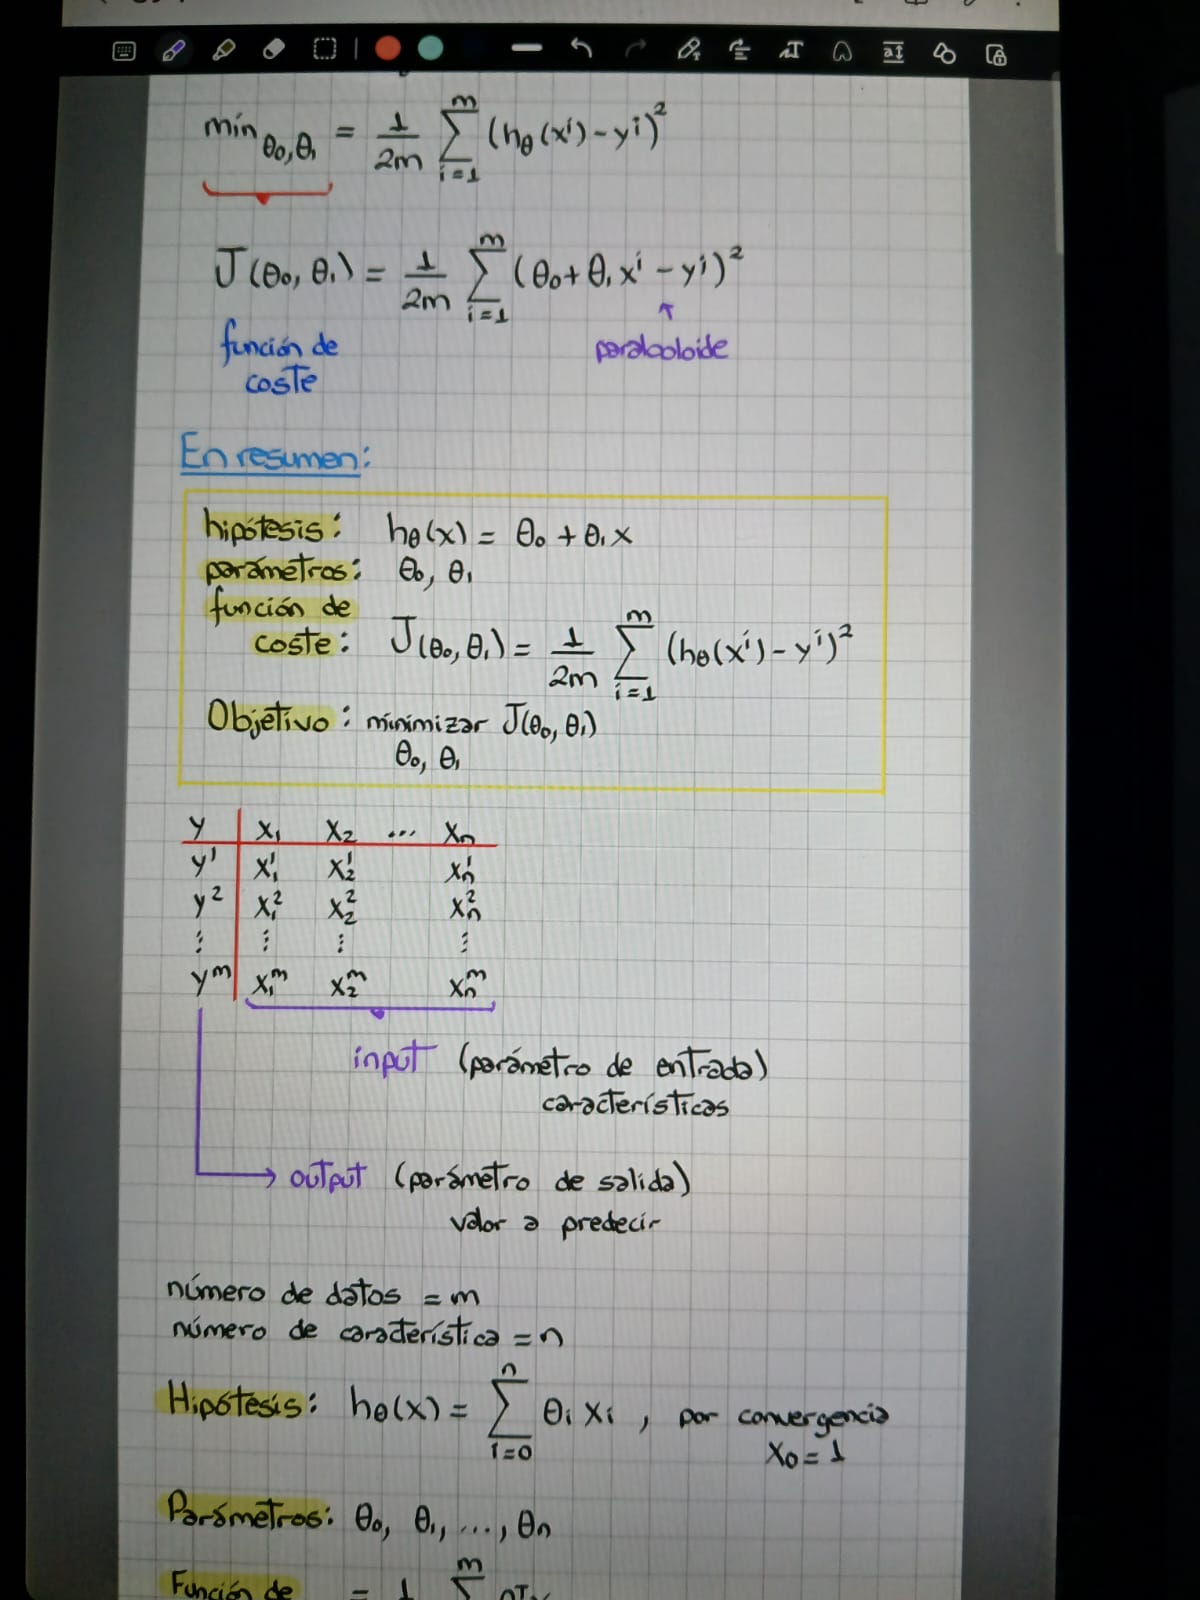 min θ₀,θ₁ = 1/2m ∑ᵢ₌₁ᵐ (hθ(xⁱ) - yⁱ)²
J(θ₀, θ₁) = 1/2m ∑ᵢ₌₁ᵐ (θ₀ + θ₁ xⁱ - yⁱ)²
función de
coste
paraboloide
En resumen:
hipótesis: hθ(x) = θ₀ + θ₁x
parámetros: θ₀, θ₁
función de
coste: J(θ₀, θ₁) = 1/2m ∑ᵢ₌₁ᵐ (hθ(xⁱ) - yⁱ)²
Objetivo: minimizar J(θ₀, θ₁)
θ₀, θ₁
y x₁ x₂ ... xₙ
y¹ x₁¹ x₂¹ xₙ¹
y² x₁² x₂² xₙ²
⋮ ⋮ ⋮ ⋮
yᵐ x₁ᵐ x₂ᵐ xₙᵐ
input (parámetro de entrada)
características
→ output (parámetro de salida)
valor a predecir
número de datos = m
número de característica = n
Hipótesis: hθ(x) = ∑ᵢ₌₀ⁿ θᵢ xᵢ , por convergencia
x₀ = 1
Parámetros: θ₀, θ₁, ..., θₙ
Función de = 1 ∑ᵐ